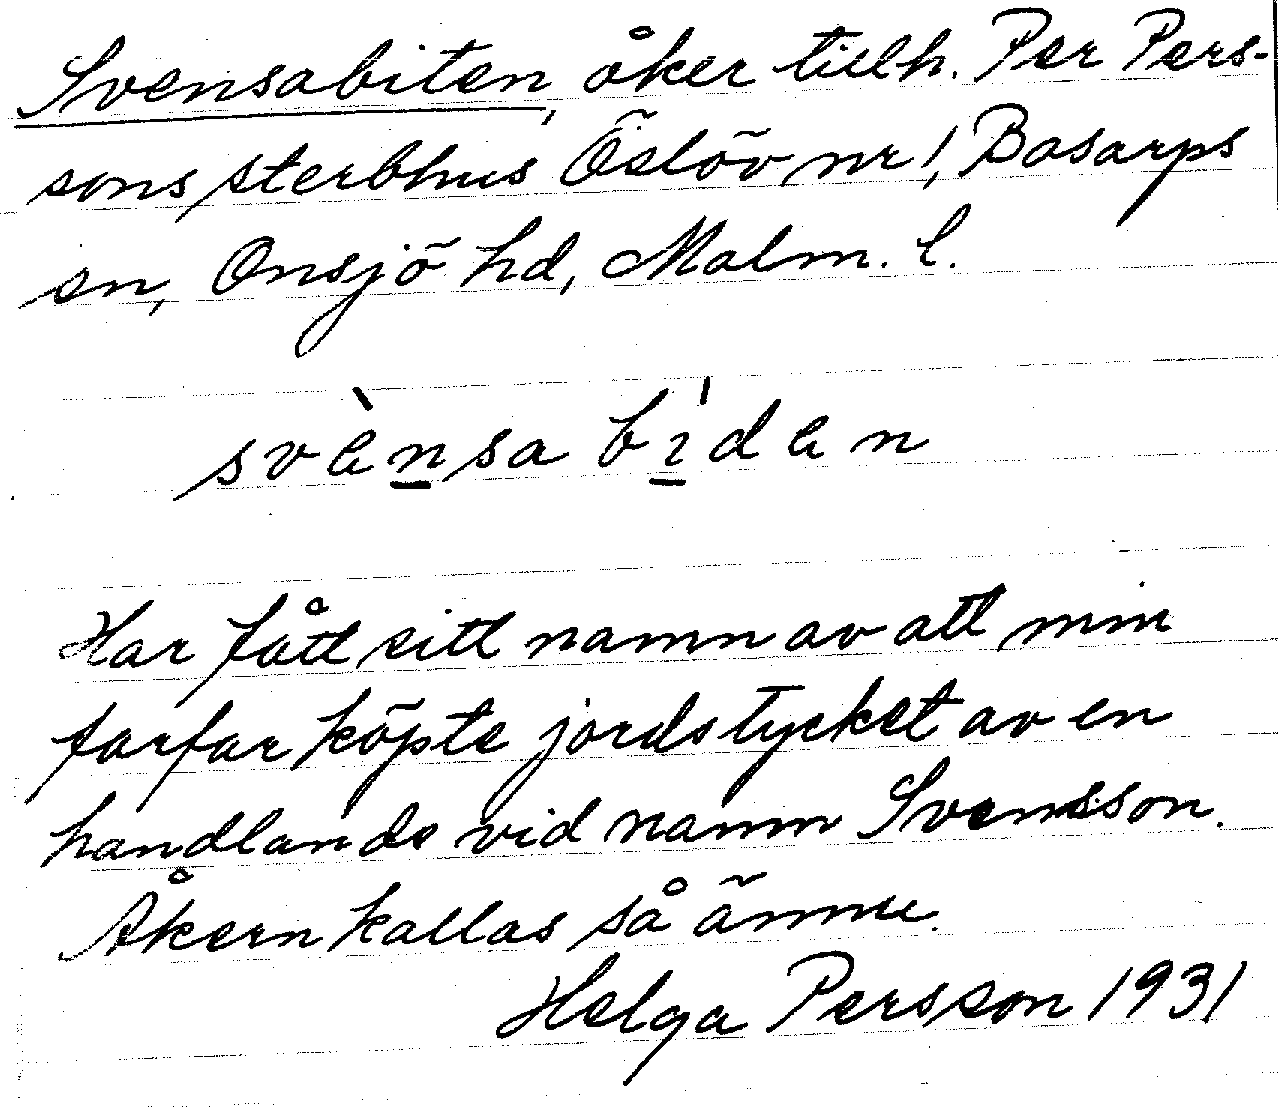 Svensabiten, åker tillh. Per Pers-
sons sterbhus Öslöv nr 1, Bosarps
sn, Onsjö hd, Malm. l.
svènsa bı̍dan
Har fått sitt namn av att min
farfar köpte jordstycket av en
handlande vid namn Svensson.
Åkern kallas så ännu.
Helga Persson 1931